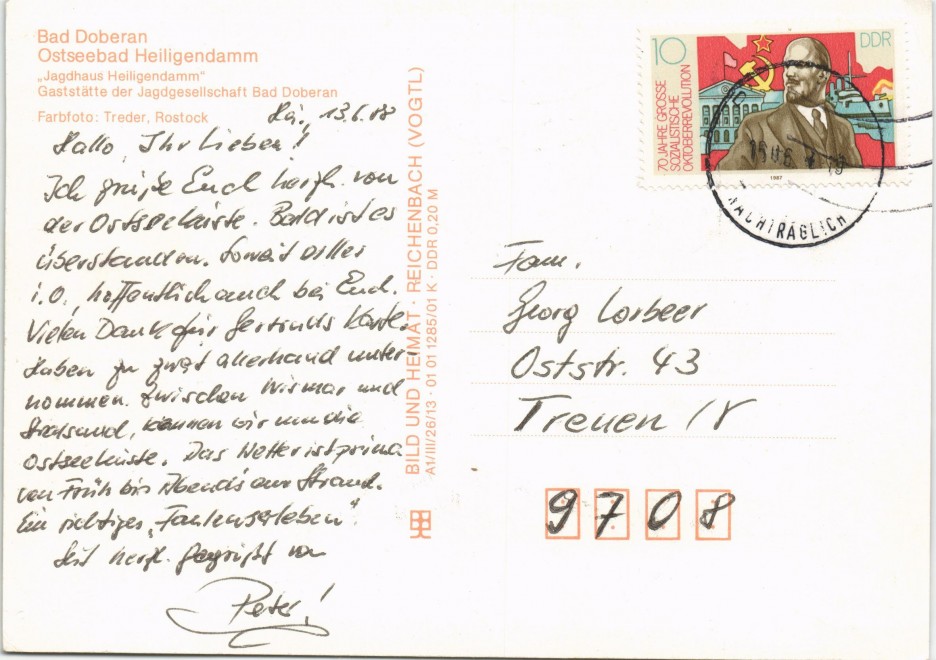 Bad Doberan
Ostseebad Heiligendamm
„Jagdhaus Heiligendamm"
Gaststätte der Jagdgesellschaft Bad Doberan
Farbfoto: Treder, Rostock
13.6.88
Hallo, Ihr Lieben!
Ich grüße Euch herzl. von
der Ostseeküste. Bald ist es
überstanden. Soweit alles
i.O., hoffentlich auch bei Euch.
Vielen Dank für Gertruds Karte.
Haben zu zweit allerhand unter
nommen. Zwischen Wismar und
Stralsund, kennen wir nun die
Ostseeküste. Das Wetter ist prima
von Früh bis Abends am Strand.
Ein richtiges „Faulenzerleben".
Seid herzl. gegrüßt von
Peter!
BILD UND HEIMAT · REICHENBACH (VOGTL)
A1/III/26/13 · 01 01 1285/01 K · DDR 0,20 M
10
DDR
70 JAHRE GROSSE
SOZIALISTISCHE
OKTOBERREVOLUTION
1987
NACHTRÄGLICH
Fam.
Georg Lorbeer
Oststr. 43
Treuen IV
9708